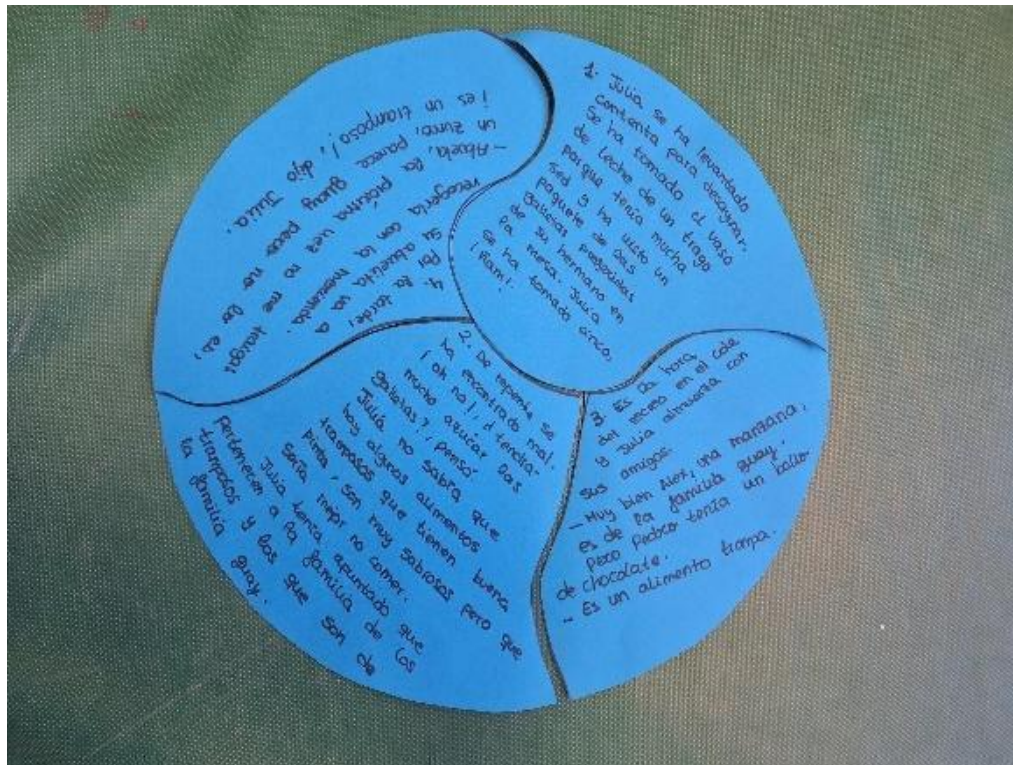 1. Julia se ha levantado
contenta para desayunar.
Se ha tomado el vaso
de leche de un trago
porque tenía mucha
sed y ha visto un
paquete de las
galletas preferidas
de su hermano en
la mesa. Julia
se ha tomado cinco.
¡Ñam!.
2. De repente se
ha encontrado mal.
¡oh no!, ¿tendrán
mucho azúcar las
galletas?, pensó
Julia no sabía que
hay algunos alimentos
tramposos que tienen buena
pinta, son muy sabrosos pero que
sería mejor no comer.
Julia tenía apuntado que
pertenecen a la familia de los
tramposos y los que son de
la familia guay.
3. Es la hora
del recreo en el cole
y Julia almuerza con
sus amigos.
- Muy bien Alex, una manzana,
es de la familia guay.
Pero Pedro tenía un bollo
de chocolate.
- Es un alimento trampa.
4. Por la tarde,
su abuelita va a
recogerla con la merienda.
- Abuela, la próxima vez no me traigas
un zumo, parece guay pero no lo es,
¡es un tramposo!, dijo
Julia.